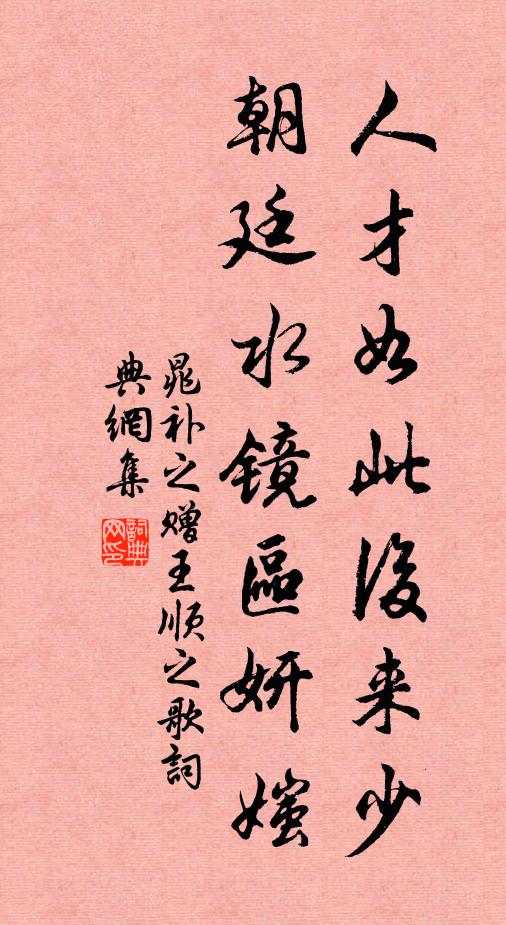 人才如此後来少
朝廷水鏡區妍媸
晁补之赠王順之歌詞
典網集
詞典網印